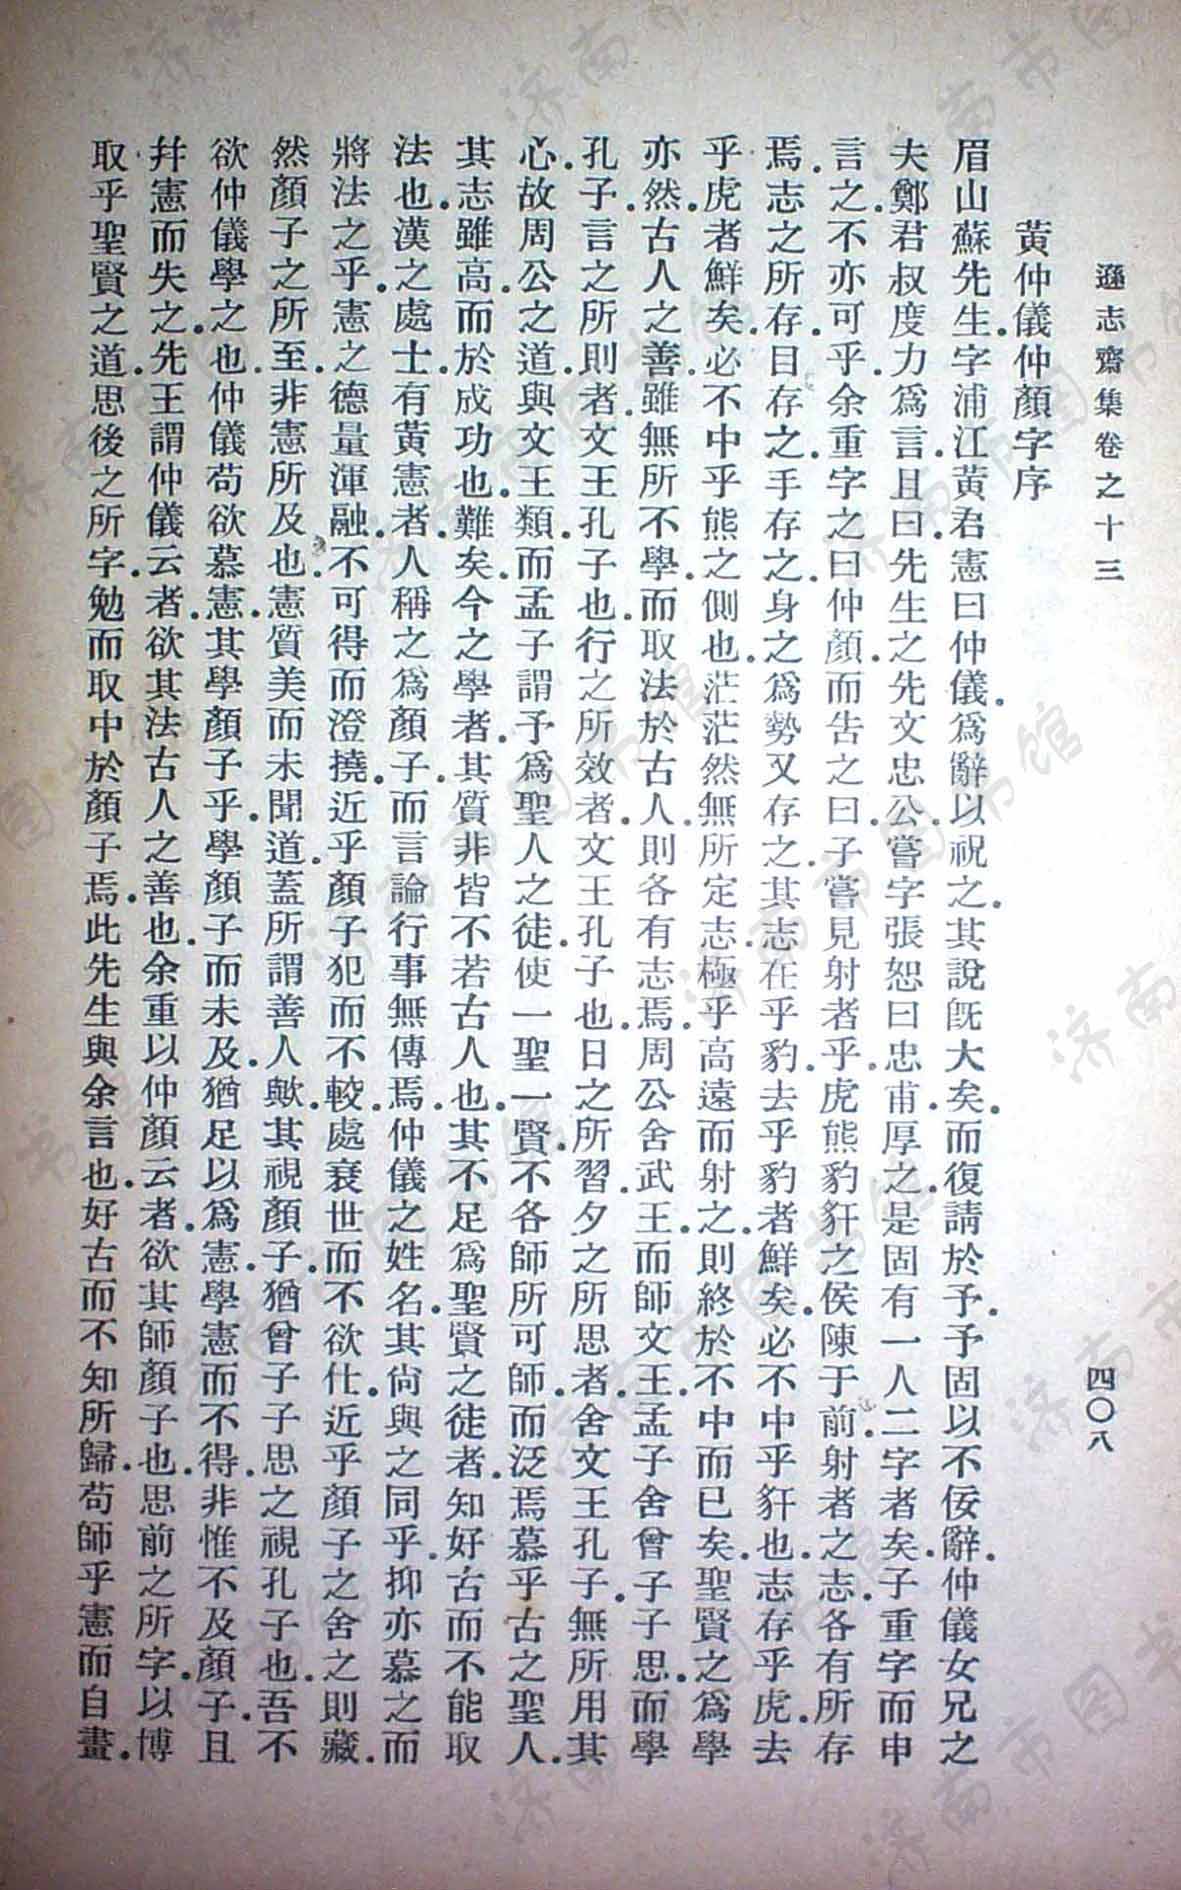 遜志齋集卷之十三
四〇八
黃仲儀仲顏字序
眉山蘇先生字浦江黃君憲曰仲儀爲辭以祝之其說旣大矣而復請於予予固以不佞辭仲儀女兄之
夫鄭君叔度力爲言且曰先生之先文忠公嘗字張恕曰忠甫厚之是固有一人二字者矣子重字而申
言之不亦可乎余重字之曰仲顏而吿之曰子嘗見射者乎虎熊豹豻之侯陳于前射者之志各有所存
焉志之所存目存之手存之身之爲勢又存之其志在乎豹去乎豹者鮮矣必不中乎豻也志存乎虎去
乎虎者鮮矣必不中乎熊之側也茫茫然無所定志極乎高遠而射之則終於不中而已矣聖賢之爲學
亦然古人之善雖無所不學而取法於古人則各有志焉周公舍武王而師文王孟子舍曾子子思而學
孔子言之所則者文王孔子也行之所效者文王孔子也日之所習夕之所思者舍文王孔子無所用其
心故周公之道與文王類而孟子謂予爲聖人之徒使一聖一賢不各師所可師而泛焉慕乎古之聖人
其志雖高而於成功也難矣今之學者其質非皆不若古人也其不足爲聖賢之徒者知好古而不能取
法也漢之處士有黃憲者人稱之爲顏子而言論行事無傳焉仲儀之姓名其尙與之同乎抑亦慕之而
將法之乎憲之德量渾融不可得而澄撓近乎顏子犯而不較處衰世而不欲仕近乎顏子之舍之則藏
然顏子之所至非憲所及也憲質美而未聞道蓋所謂善人歟其視顏子猶曾子子思之視孔子也吾不
欲仲儀學之也仲儀苟欲慕憲其學顏子乎學顏子而未及猶足以爲憲學憲而不得非惟不及顏子且
幷憲而失之先王謂仲儀云者欲其法古人之善也余重以仲顏云者欲其師顏子也思前之所字以博
取乎聖賢之道思後之所字勉而取中於顏子焉此先生與余言也好古而不知所歸苟師乎憲而自畫
济南市图书馆